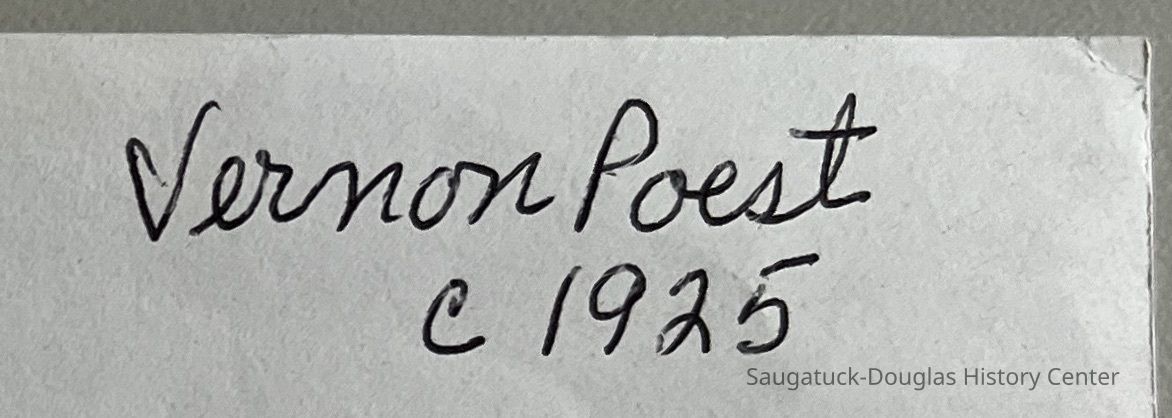 Vernon Poest
c 1925
Saugatuck-Douglas History Center